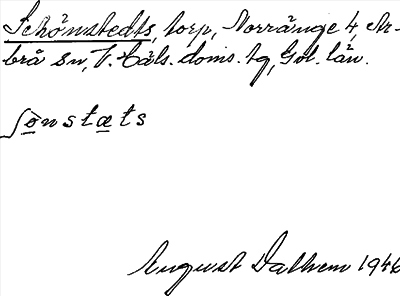 Schönstedts, torp, Norränge 4, Ar-
brå sn, V. Häls. doms. tg, Gvl. län.
ʃònstæts
August Dalhem 1946